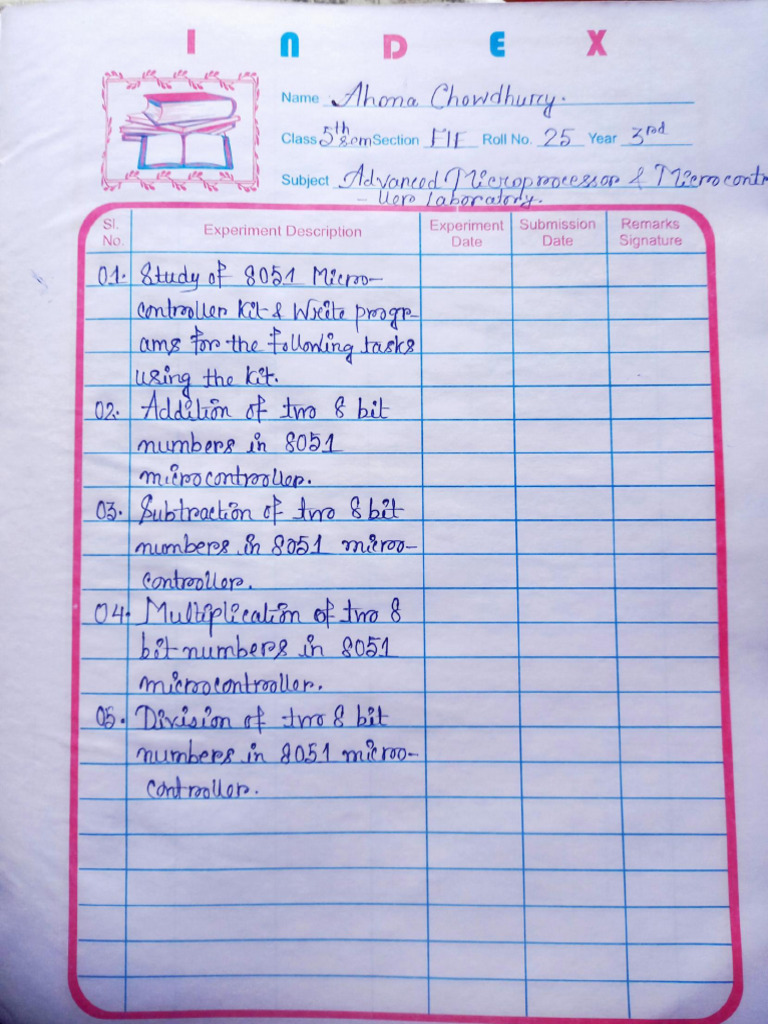 INDEX
Name Ahona Chowdhury.
Class 5th Sem Section EIE Roll No. 25 Year 3rd
Subject Advanced Microprocessor & Microcontr
- ller Laboratory.
Sl. No. Experiment Description Experiment Date Submission Date Remarks Signature
01. Study of 8051 Micro-
controller Kit & Write progr-
ams for the following tasks
using the kit.
02. Addition of two 8 bit
numbers in 8051
microcontroller.
03. Subtraction of two 8 bit
numbers in 8051 micro-
controller.
04. Multiplication of two 8
bit numbers in 8051
microcontroller.
05. Division of two 8 bit
numbers in 8051 micro-
controller.